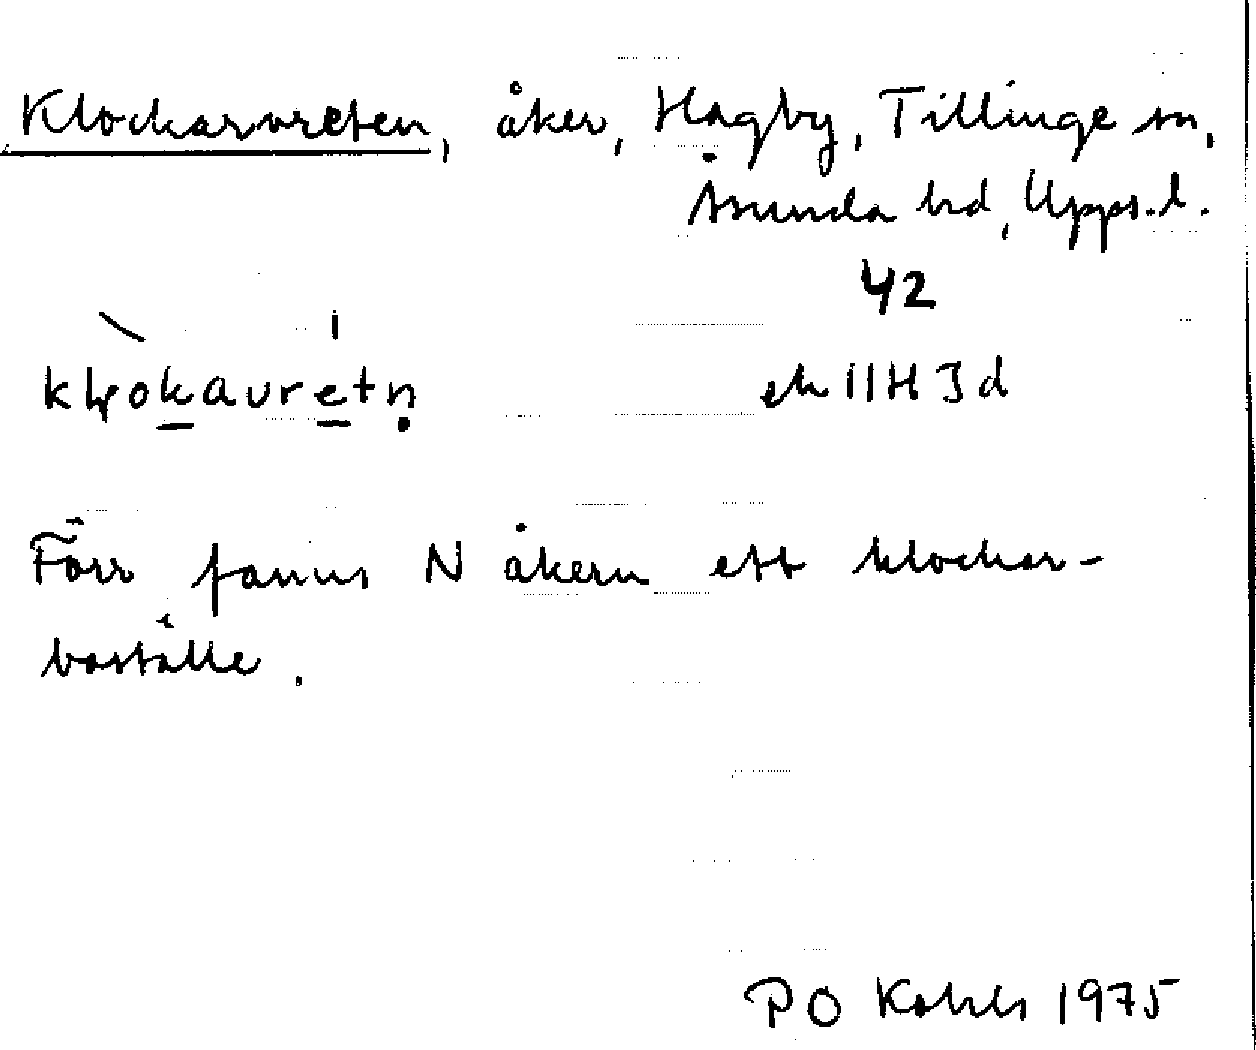 Klockarvreten, åker, Hagby, Tillinge sn,
Åsunda hd, Upps. l.
42
ek 11H 3d
Förr fanns N åkern ett klockar-
boställe.
PO 1975